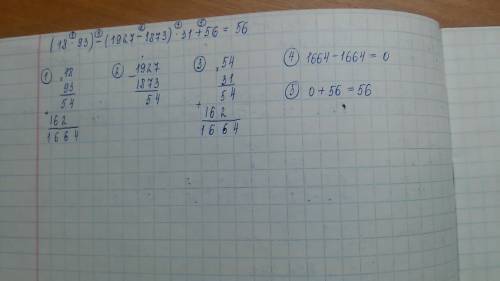 (18 · 93) - (1927 - 1873) · 31 + 56 = 56
① × 18
93
54
+
162
1664
② - 1927
1873
54
③ × 54
31
54
+
162
1664
④ 1664 - 1664 = 0
⑤ 0 + 56 = 56